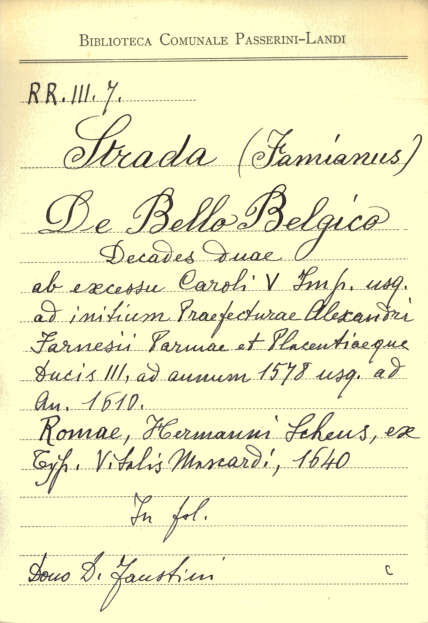 BIBLIOTECA COMUNALE PASSERINI-LANDI
RR. III. 7.
Strada (Famianus)
De Bello Belgico
Decades duae
ab excessu Caroli V Imp. usq.
ad initium Praefecturae Alexandri
Farnesii Parmae et Placentiaeque
Ducis III, ad annum 1578 usq. ad
An. 1610.
Romae, Hermanni Scheus, ex
Typ. Vitalis Mascardi, 1640
In fol.
Dono D. Faustini c